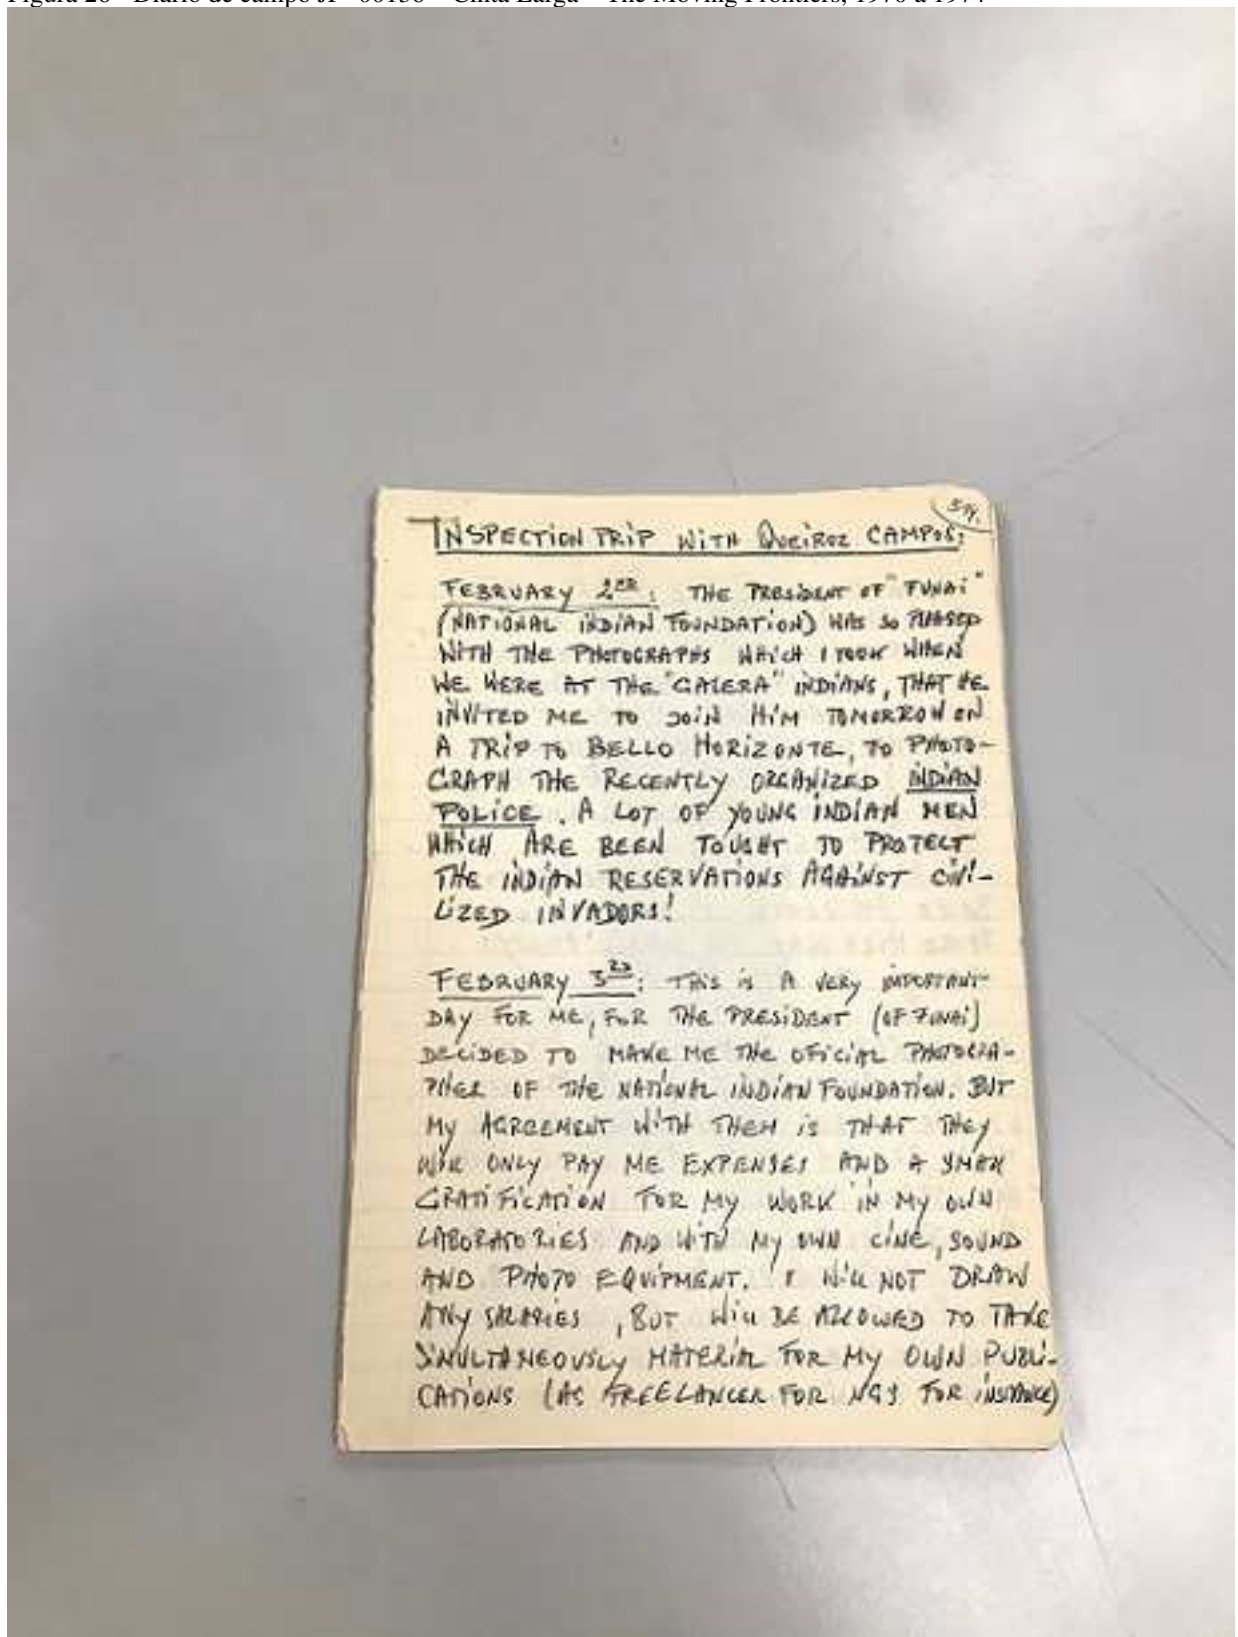 Figura 26 - Diário de campo JP 00136 – Cinta Larga – The Moving Frontiers, 1970 a 1974
INSPECTION TRIP WITH QUEIROZ CAMPOS:
FEBRUARY 2ND: THE PRESIDENT OF "FUNAI"
(NATIONAL INDIAN FOUNDATION) WAS SO PLEASED
WITH THE PHOTOGRAPHS WHICH I TOOK WHEN
WE WERE AT THE "GALERA" INDIANS, THAT HE
INVITED ME TO JOIN HIM TOMORROW ON
A TRIP TO BELLO HORIZONTE, TO PHOTO-
GRAPH THE RECENTLY ORGANIZED INDIAN
POLICE. A LOT OF YOUNG INDIAN MEN
WHICH ARE BEEN TOUGHT TO PROTECT
THE INDIAN RESERVATIONS AGAINST CIVI-
LIZED INVADORS!
FEBRUARY 3RD: THIS IS A VERY IMPORTANT
DAY FOR ME, FOR THE PRESIDENT (OF FUNAI)
DECIDED TO MAKE ME THE OFICIAL PHOTOGRA-
PHER OF THE NATIONAL INDIAN FOUNDATION. BUT
MY AGREEMENT WITH THEM IS THAT THEY
WILL ONLY PAY ME EXPENSES AND A SMALL
GRATIFICATION FOR MY WORK IN MY OWN
LABORATORIES AND WITH MY OWN CINE, SOUND
AND PHOTO EQUIPMENT. I WILL NOT DRAW
ANY SALARIES, BUT WILL BE ALLOWED TO TAKE
SIMULTANEOUSLY MATERIAL FOR MY OWN PUBLI-
CATIONS (AS FREELANCER FOR NGS FOR INSTANCE)